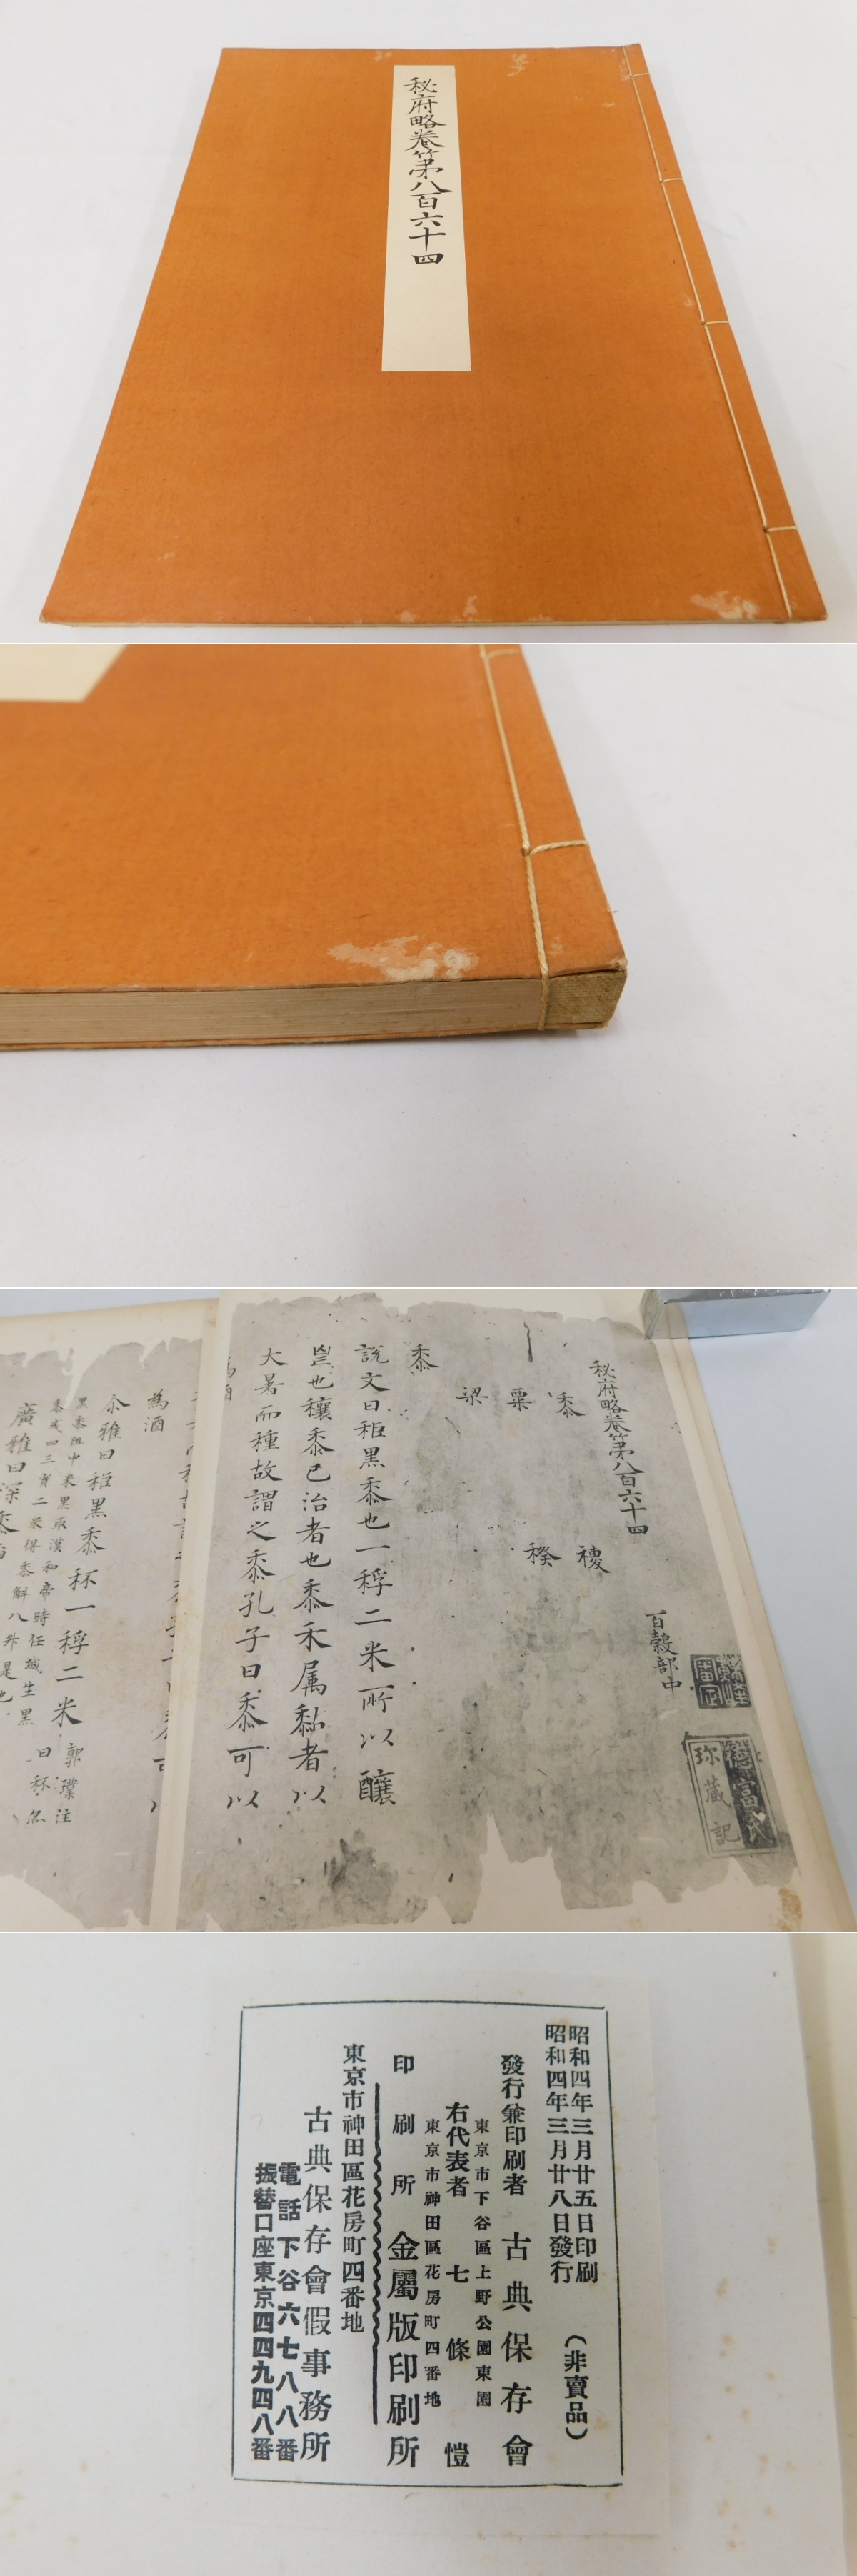 秘府略卷第八百六十四
秘府略卷第八百六十四
百穀部中
黍
稷
粟
穄
梁
黍
說文曰秬黒黍也一稃二米所以釀
也穰黍已治者也黍禾属黏者以
大暑而種故謂之黍孔子曰黍可以
為酒
為酒
尒雅曰秬黒黍秠一稃二米
郭璞注
曰秠
黒黍
昭和四年三月廿五日印刷
昭和四年三月廿八日發行
(非賣品)
發行兼印刷者 古典保存會
東京市下谷區上野公園東園
右代表者 七條愷
東京市神田區花房町四番地
印刷所 金屬版印刷所
東京市神田區花房町四番地
古典保存會假事務所
電話下谷六七八八番
振替口座東京四四九四八番
德富氏
珎藏記